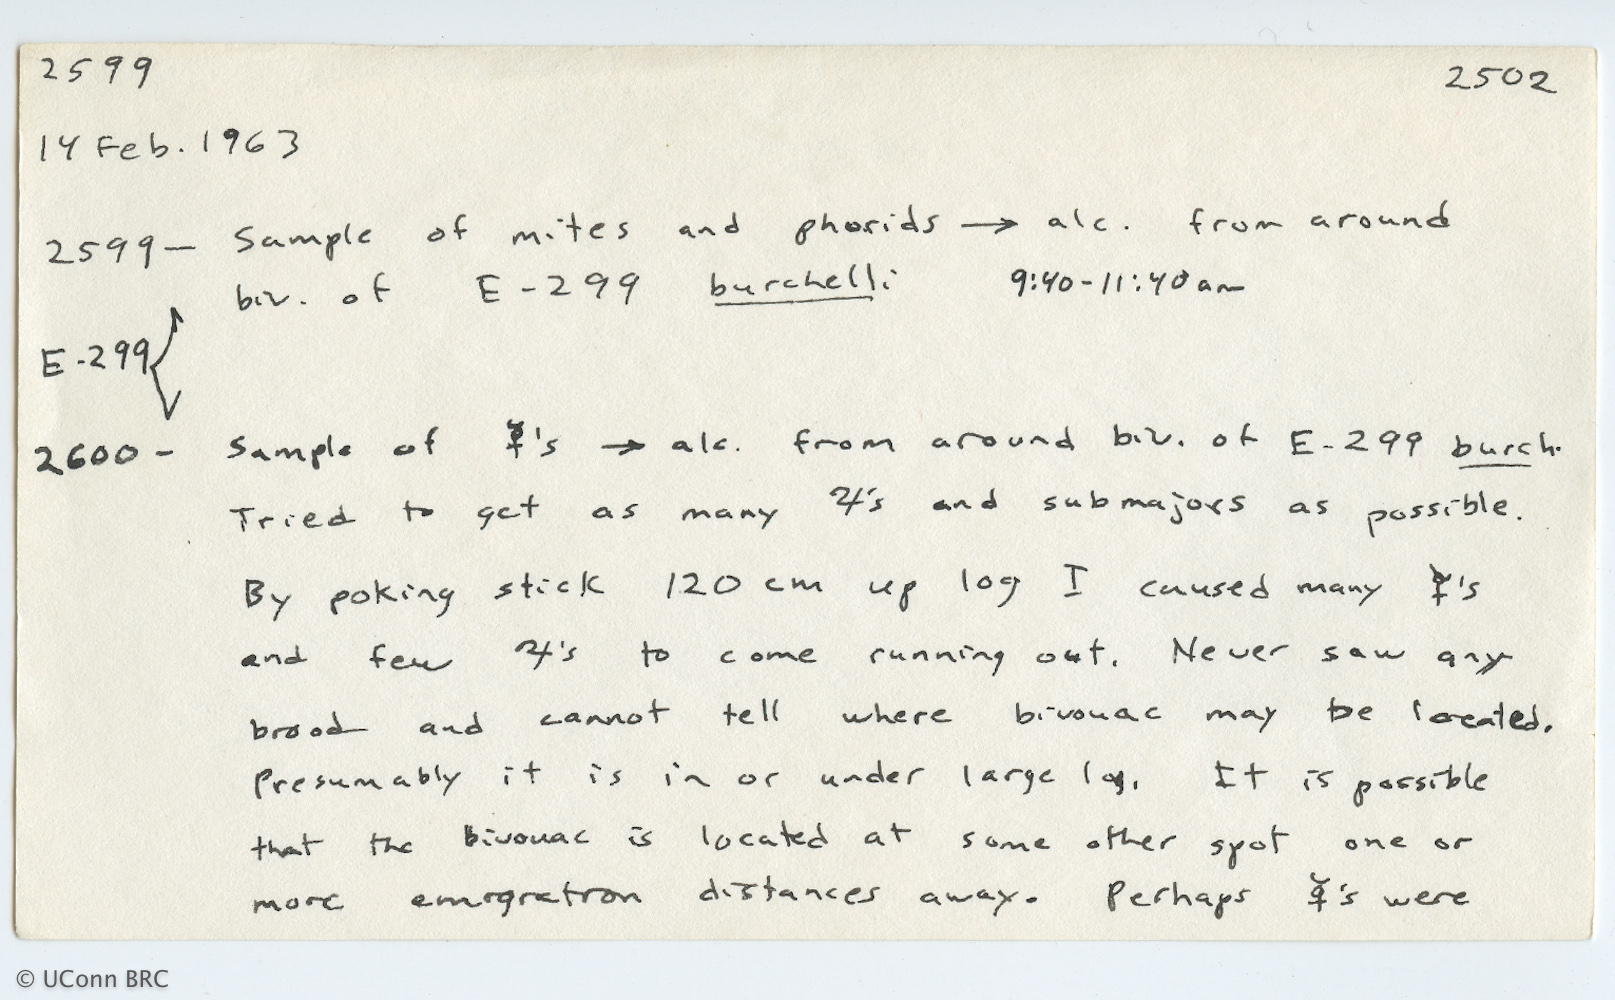 2599 2502
14 Feb. 1963
2599 — Sample of mites and phorids → alc. from around
biv. of E-299 burchelli 9:40-11:40 am
E-299
2600 - Sample of ☿'s → alc. from around biv. of E-299 burch.
Tried to get as many ♃'s and submajors as possible.
By poking stick 120 cm up log I caused many ☿'s
and few ♃'s to come running out. Never saw any
brood and cannot tell where bivouac may be located.
Presumably it is in or under large log. It is possible
that the bivouac is located at some other spot one or
more emigration distances away. Perhaps ☿'s were
© UConn BRC